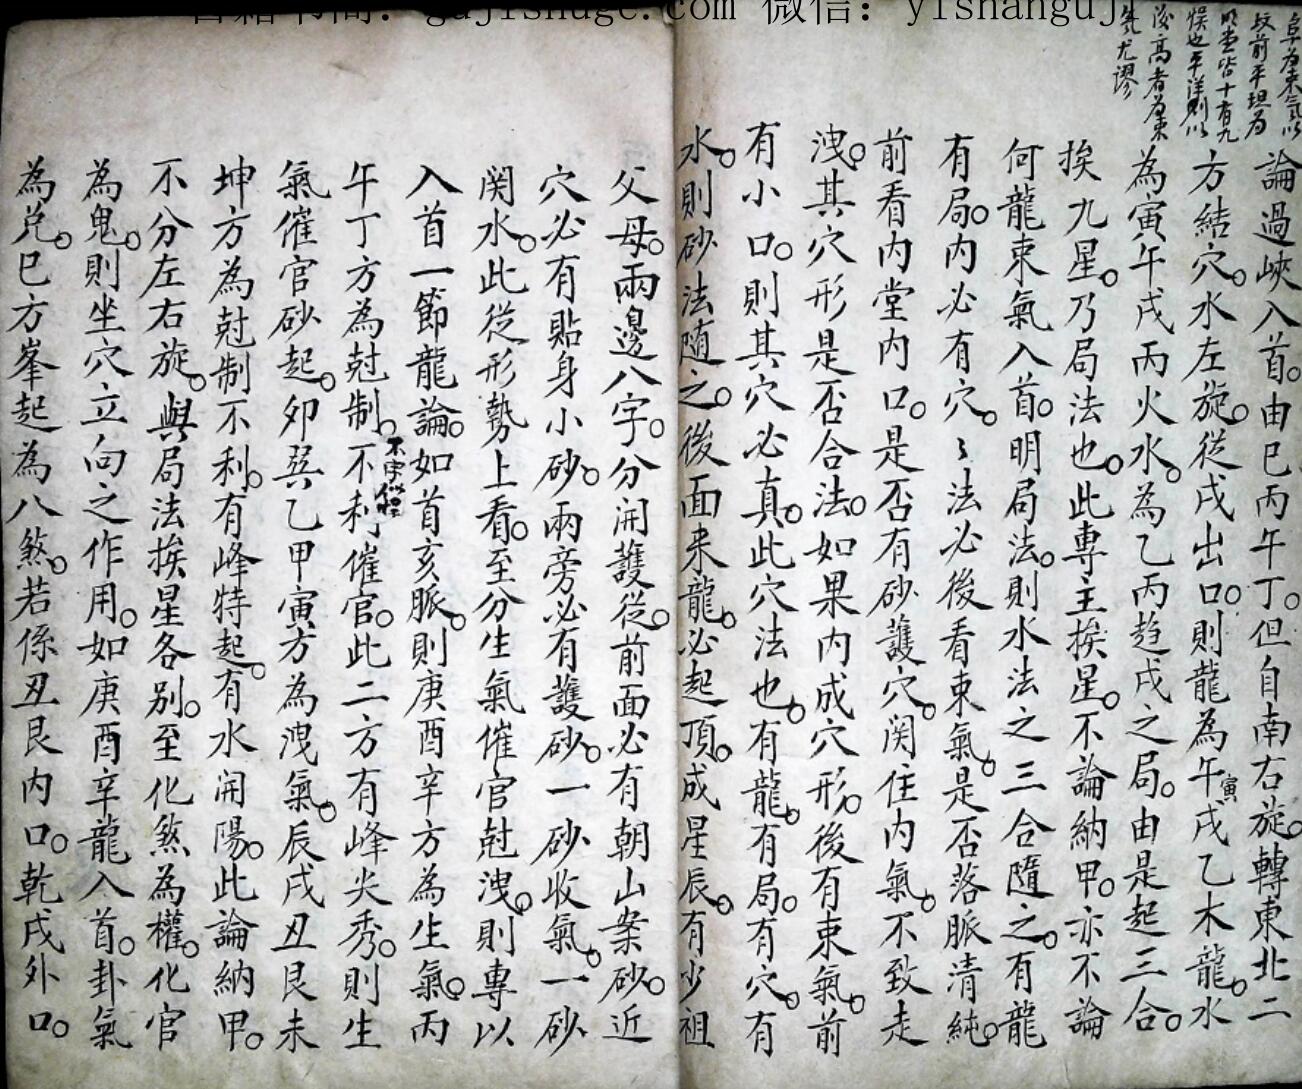 阜為束气以
坟前平坦為
明堂皆十有九
悮也平洋則以
後高者為束
氣尤謬
論過峽入首由巳丙午丁但自南右旋轉東北二
方結穴水左旋從戌出口則龍為午寅戌乙木龍水
為寅午戌丙火水為乙丙趋戌之局由是起三合
挨九星乃局法也此專主挨星不論納甲亦不論
何龍束氣入首明局法則水法之三合隨之有龍
有局内必有穴々法必後看束氣是否落脈清純
前看内堂内口是否有砂護穴関住内氣不致走
洩其穴形是否合法如果内成穴形後有束氣前
有小口則其穴必真此穴法也有龍有局有穴有
水則砂法随之後面来龍必起頂成星辰有少祖
父母兩邊八字分開護從前面必有朝山案砂近
穴必有貼身小砂兩旁必有護砂一砂收氣一砂
関水此從形勢上看至分生氣催官尅洩則專以
入首一節龍論如首亥脈則庚酉辛方為生氣丙
午丁方為尅制不利催官此二方有峰尖秀則生
氣催官砂起夘巽乙甲寅方為洩氣辰戌丑艮未
坤方為尅制不利有峰特起有水開陽此論納甲
不分左右旋與局法挨星各別至化煞為權化官
為鬼則坐穴立向之作用如庚酉辛龍入首卦氣
為兌巳方峯起為八煞若係丑艮内口乾戌外口